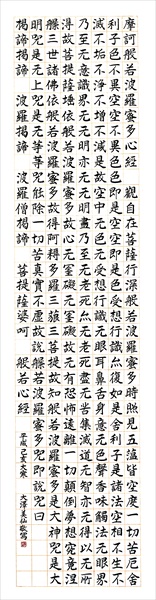 摩訶般若波羅蜜多心經 觀自在菩薩行深般若波羅蜜多時照見五蘊皆空度一切苦厄舎
利子色不異空空不異色色即是空空即是色受想行識亦復如是舎利子是諸法空相不生不
滅不垢不淨不增不減是故空中无色无受想行識无眼耳鼻舌身意无色聲香味觸法无眼界
乃至无意識界无无明亦无无明盡乃至无老死亦无老死盡无苦集滅道无智亦无得以无所
得故菩提薩埵依般若波羅蜜多故心无罣礙无罣礙故无有恐怖遠離一切顛倒夢想究竟涅
槃三世諸佛依般若波羅蜜多故得阿耨多羅三藐三菩提故知般若波羅蜜多是大神咒是大
明咒是无上咒是无等等咒能除一切苦真實不虛故說般若波羅蜜多咒即說咒曰
揭諦揭諦 波羅揭諦 波羅僧揭諦 菩提薩婆呵 般若心經
平成己亥大寒 大澤美仙敬寫